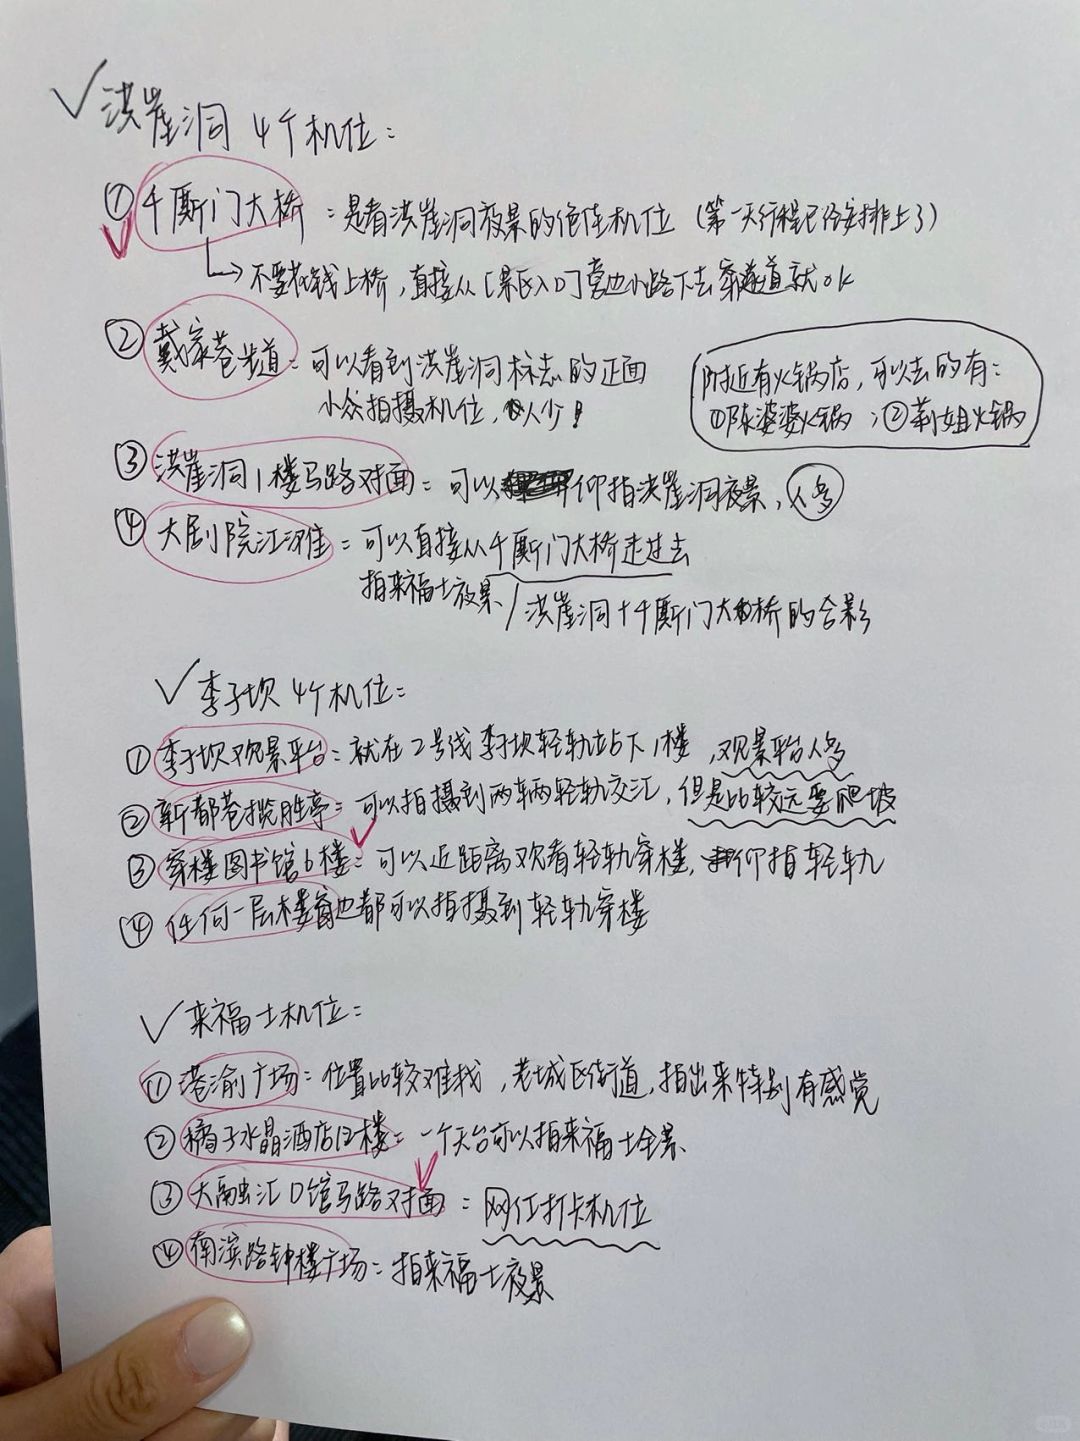 洪崖洞 4个机位：
① 千厮门大桥：是看洪崖洞夜景的绝佳机位（第一天行程已经安排上了）
不要花钱上桥，直接从[景区入口]旁边小路下去穿隧道就ok
② 戴家巷步道：可以看到洪崖洞标志的正面
小众拍摄机位，人少！
附近有火锅店，可以去的有：
①陈婆婆火锅；②莉姐火锅
③ 洪崖洞1楼马路对面：可以仰拍洪崖洞夜景，人多
④ 大剧院江滩：可以直接从千厮门大桥走过去
拍来福士夜景/洪崖洞+千厮门大桥的合影
李子坝 4个机位：
① 李子坝观景平台：就在2号线李子坝轻轨站下1楼，观景平台人多
② 新都巷揽胜亭：可以拍摄到两辆轻轨交汇，但是比较远要爬坡
③ 穿楼图书馆6楼：可以近距离观看轻轨穿楼，仰拍轻轨
④ 任何一层楼窗边都可以拍摄到轻轨穿楼
来福士机位：
① 港渝广场：位置比较难找，老城区街道，拍出来特别有感觉
② 橘子水晶酒店12楼：一个天台可以拍来福士全景
③ 大融汇D馆马路对面：网红打卡机位
④ 南滨路钟楼广场：拍来福士夜景